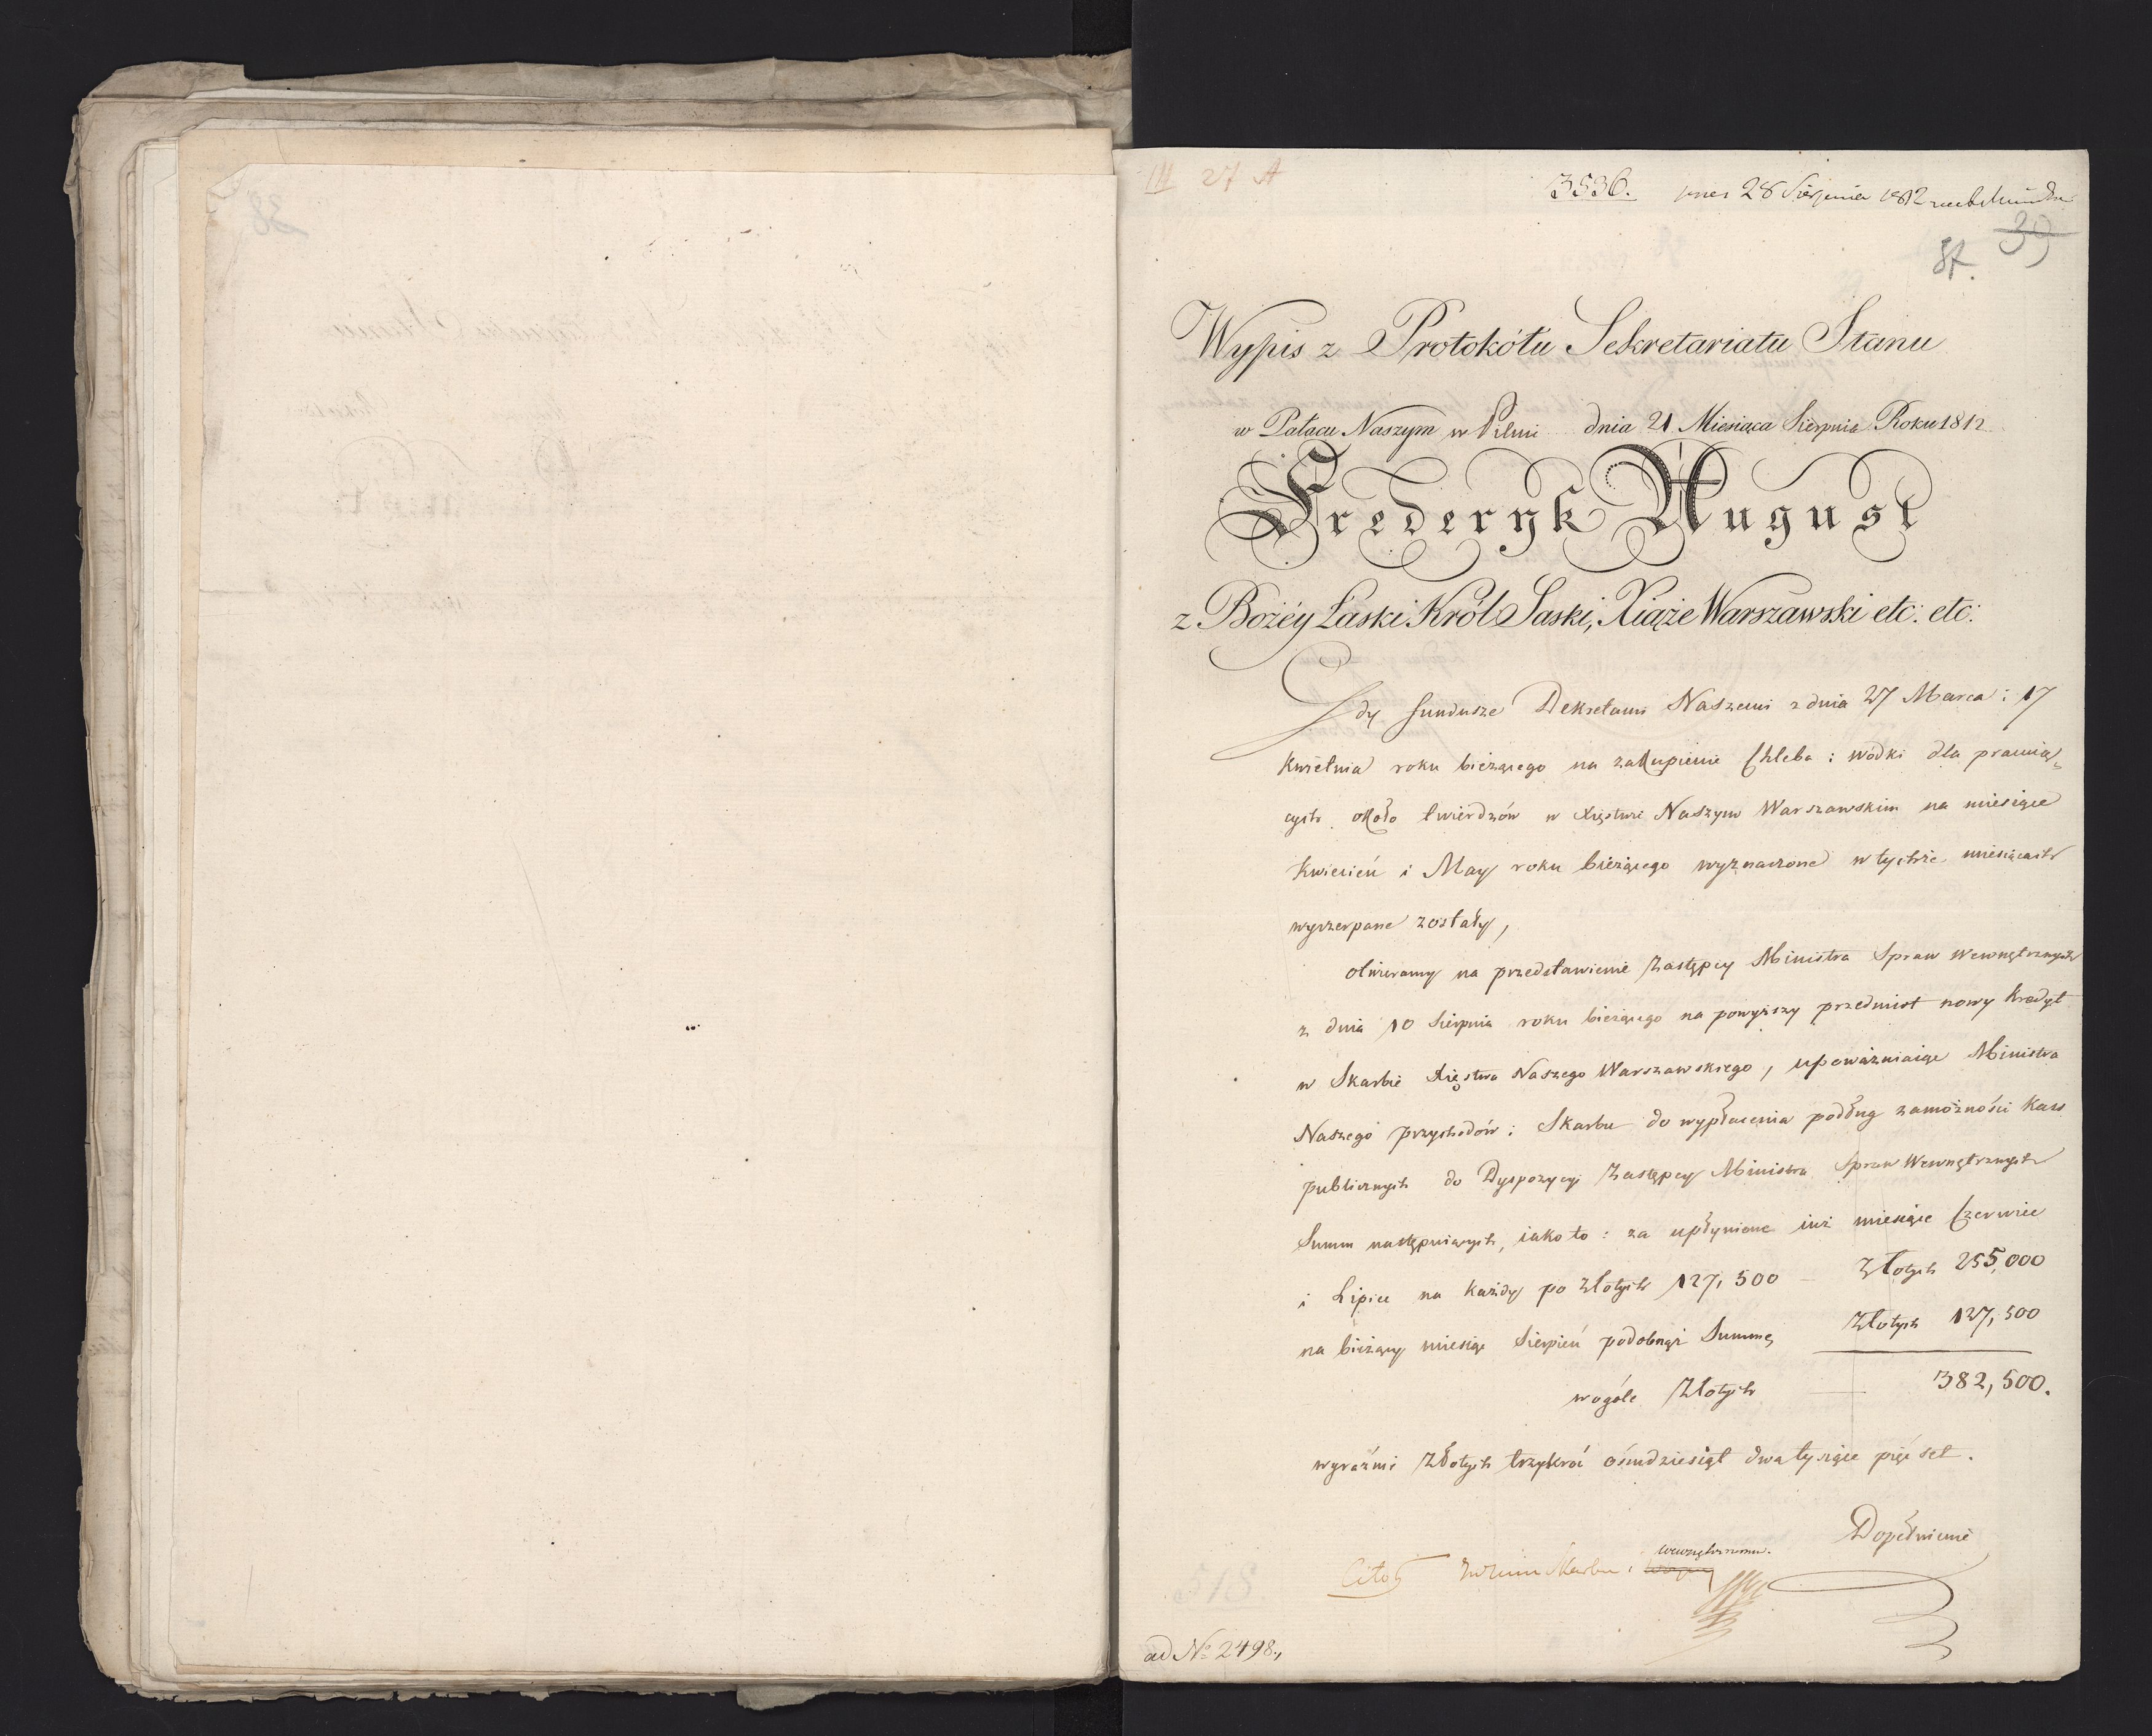 38
III 27 A
3536. pnes 28 Sierpnia 1812
39
87.
Wypis z Protokółu Sekretariatu Stanu
w Pałacu Naszym w Pilni dnia 21 Miesiąca Sierpnia Roku 1812
Fryderyk August
z Bożéy Łaski Król Saski, Xiąże Warszawski etc: etc:
Gdy fundusze Dekretami Naszemi z dnia 27 Marca i 17
Kwietnia roku bieżącego na zakupienie Chleba i wódki dla pracuią-
cych około twierdzów w Xięstwie Naszym Warszawskim na miesiące
Kwiecień i May roku bieżącego wyznaczone w tychże miesiącach
wyczerpane zostały,
otwieramy na przedstawienie Zastępcy Ministra Spraw Wewnętrznych
z dnia 10 Sierpnia roku bieżącego na powyższy przedmiot nowy kredyt
w Skarbie Xięstwa Naszego Warszawskiego, upoważniaiąc Ministra
Naszego przychodów i Skarbu do wypłacenia podług zamożności Kass
publicznych do Dyspozycyi Zastępcy Ministra Spraw Wewnętrznych
Summ następuiących, iako to: za upłynione iuż miesiące Czerwiec
i Lipiec na każdy po Złotych 127,500 — Złotych 255,000
na bieżący miesiąc Sierpień podobnąż Summę Złotych 127,500
wogóle Złotych — 382,500.
wyraźnie Złotych trzykroć ośmdziesiąt dwa tysiące pięćset.
Dopełnienie
wewnętrznemu.
Cito Skarbu i
518
ad No 2498.,